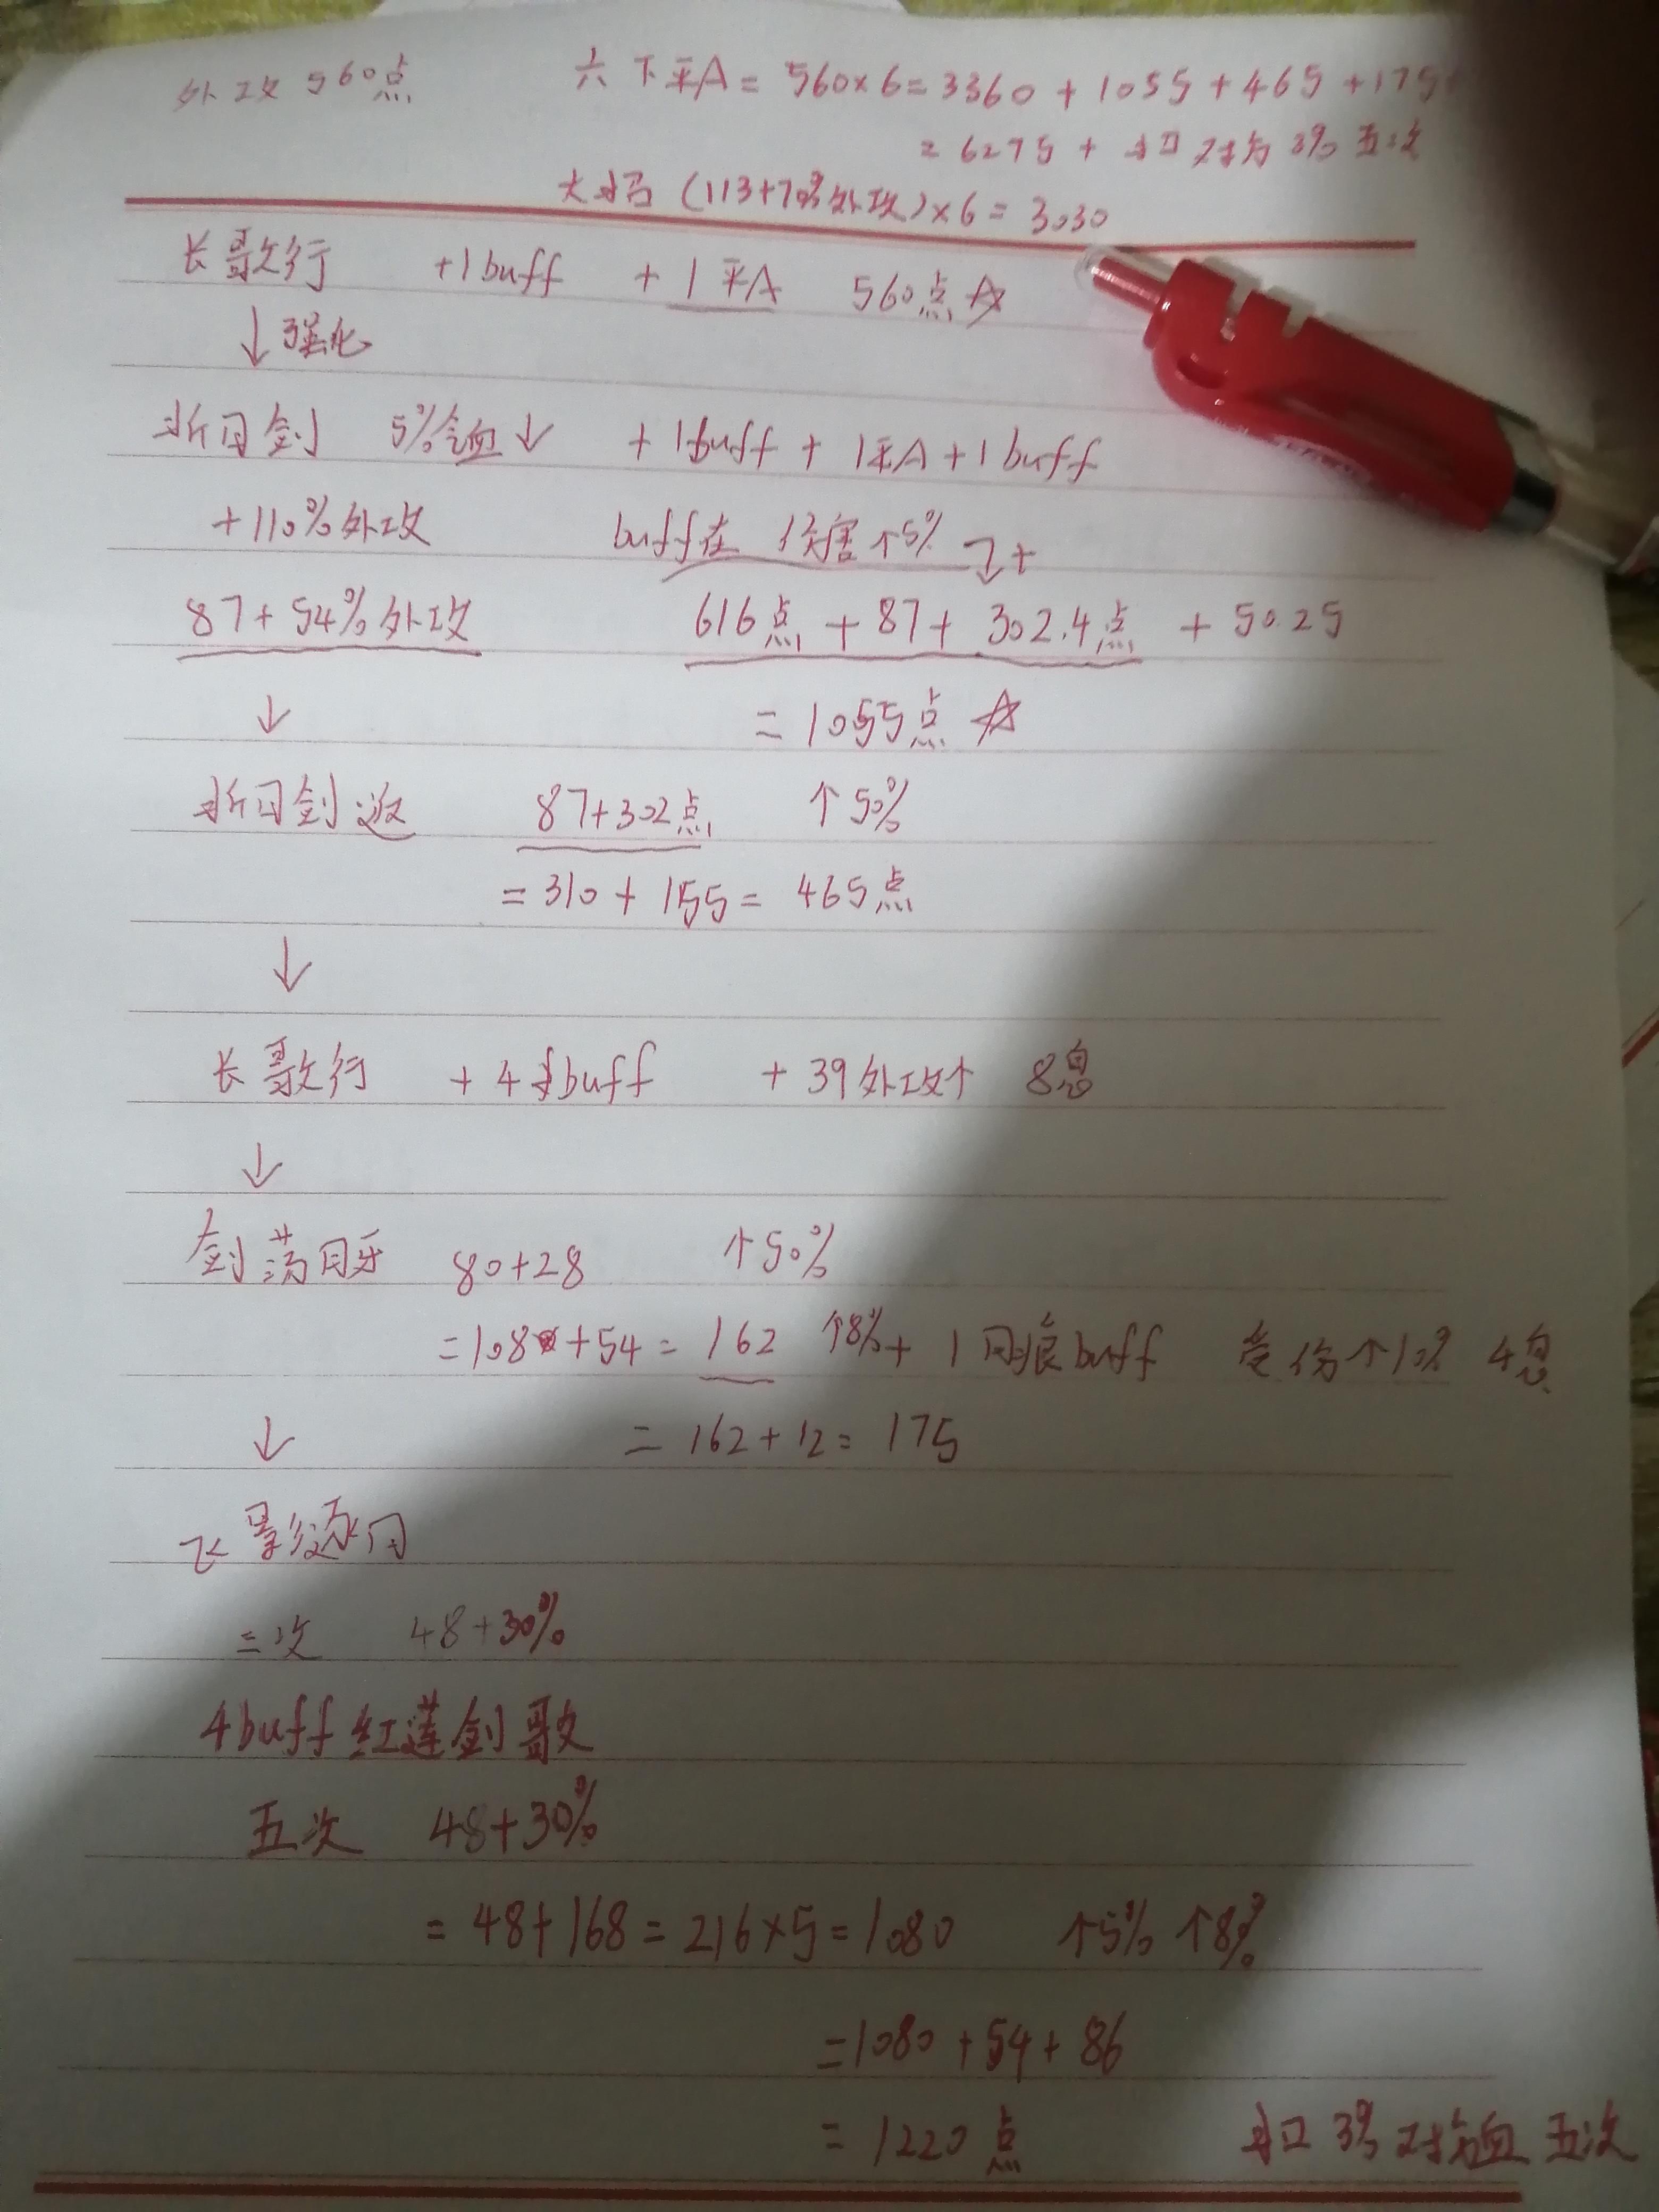 外攻 560点 六下平A = 560×6 = 3360 + 1055 + 465 + 175
= 6275 + 扣对方 3% 五次
大招 (113+70%外攻)×6 = 3030
长歌行 +1buff + 1平A 560点 ☆
↓强化
斩月剑 5%气血↓ +1buff + 1平A+1buff
+110%外攻 buff在 伤害↑5% +
87+54%外攻 616点 + 87 + 302.4点 + 50.25
↓ = 1055点 ☆
斩月剑返 87+302点 ↑50%
= 310 + 155 = 465点
↓
长歌行 + 4 buff + 39外攻↑ 8息
↓
剑荡月牙 80+28 ↑50%
=108+54 = 162 ↑8% + 1月痕buff 受伤↑10% 4息
↓ = 162+12 = 175
飞影逐月
三次 48+30%
4buff 红莲剑歌
五次 48+30%
= 48+168 = 216×5 = 1080 ↑5% ↑8%
=1080 +54 + 86
= 1220点 扣 3% 对方血 五次